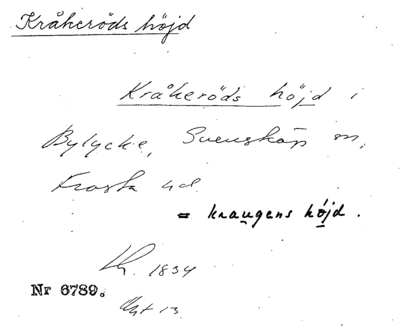 Kråkeröds höjd
Kråkeröds höjd i
Bylycke, Svensköp sn,
Frosta hd.
= kraugens höjd.
1834
Nr 6789.
Akt 13